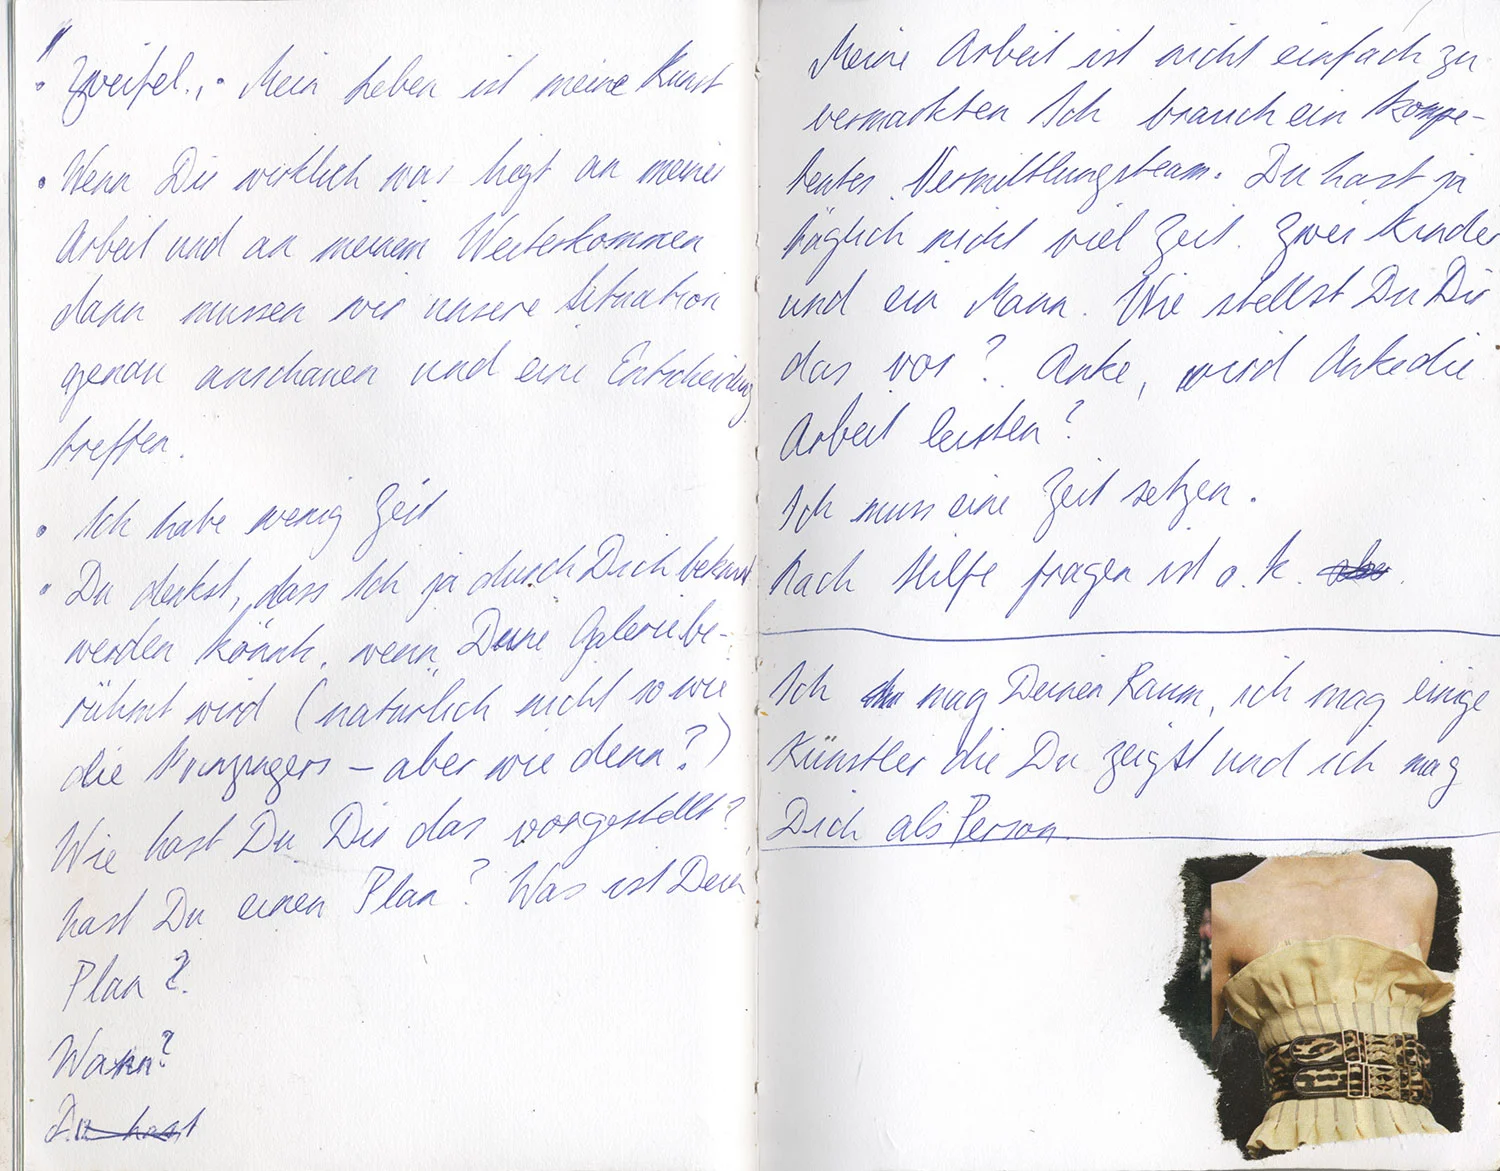 Zweifel.,. Mein Leben ist meine Kunst
• Wenn Dir wirklich was liegt an meiner
Arbeit und an meinem Weiterkommen
dann mussen wir unsere Situation
genau anschauen und eine Entscheidung
treffen.
• Ich habe wenig Zeit
• Du denkst, dass Ich ja durch Dich bekannt
werden könnte, wenn Deine Galerie be-
rühmt wird (natürlich nicht so wie
die – aber wie denn?)
Wie hast Du Dir das vorgestellt?
hast Du einen Plan? Was ist Dein
Plan?
Wann?
Du hast
Meine Arbeit ist nicht einfach zu
vermarkten Ich brauch ein kompe-
tentes Vermittlungsteam. Du hast ja
täglich nicht viel Zeit. Zwei Kinder
und ein Mann. Wie stellst Du Dir
das vor? Anke, wird Anke die
Arbeit leisten?
Ich muss eine Zeit setzen.
Nach Hilfe fragen ist o.k.
Ich mag Deinen Raum, ich mag einige
Künstler die Du zeigst und ich mag
Dich als Person.